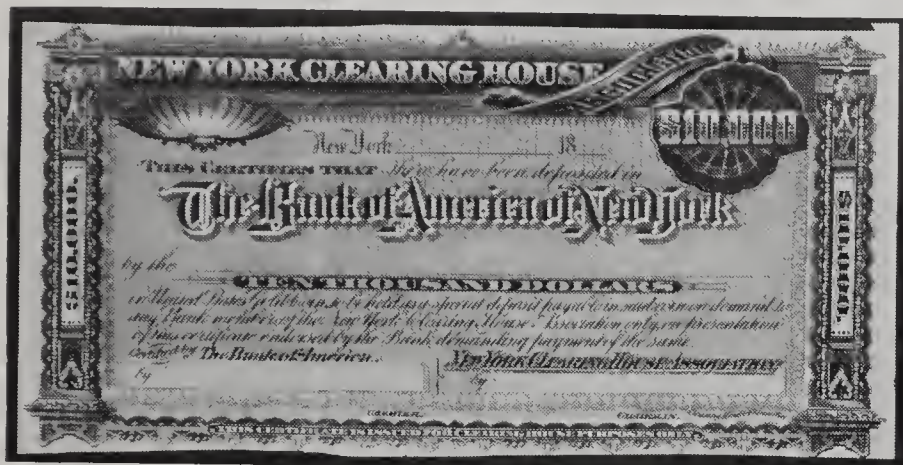 NEW YORK CLEARING HOUSE
$10,000
New York 18
THIS CERTIFIES THAT there have been deposited in
The Bank of America of New York
by the
TEN THOUSAND DOLLARS
in United States Gold Coin to be held as a special deposit payable in said coin on demand to
any Bank member of the New York Clearing House Association only on presentation
of this certificate endorsed by the Bank demanding payment of the same.
The Bank of America.
NEW YORK CLEARING HOUSE ASSOCIATION
by
by
CASHIER.
CHAIRMAN.
THIS CERTIFICATE IS ISSUED FOR CLEARING HOUSE PURPOSES ONLY
$10,000.
$10,000.